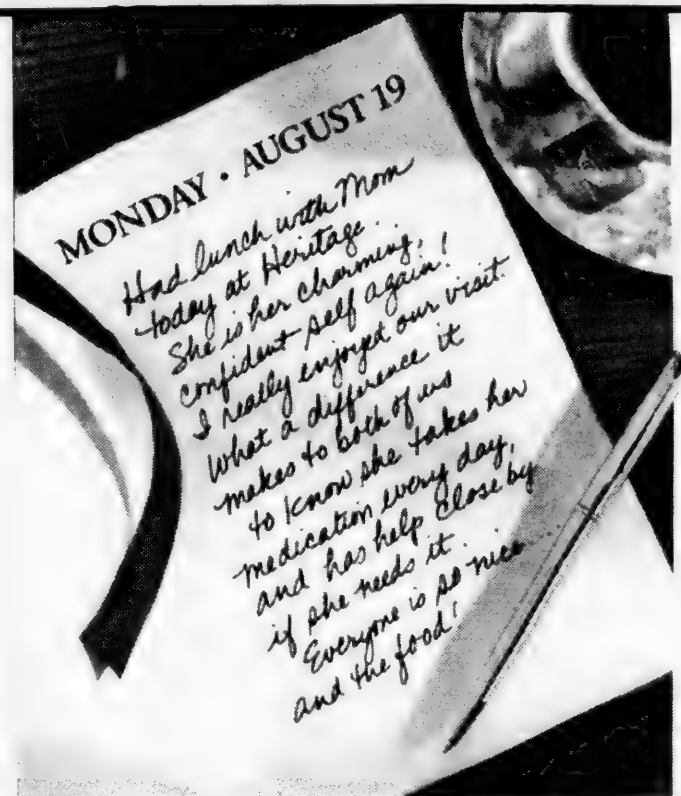 MONDAY • AUGUST 19
Had lunch with Mom
today at Heritage.
She is her charming,
confident self again!
I really enjoyed our visit.
What a difference it
makes to both of us
to know she takes her
medication every day,
and has help close by
if she needs it.
Everyone is so nice
and the food!